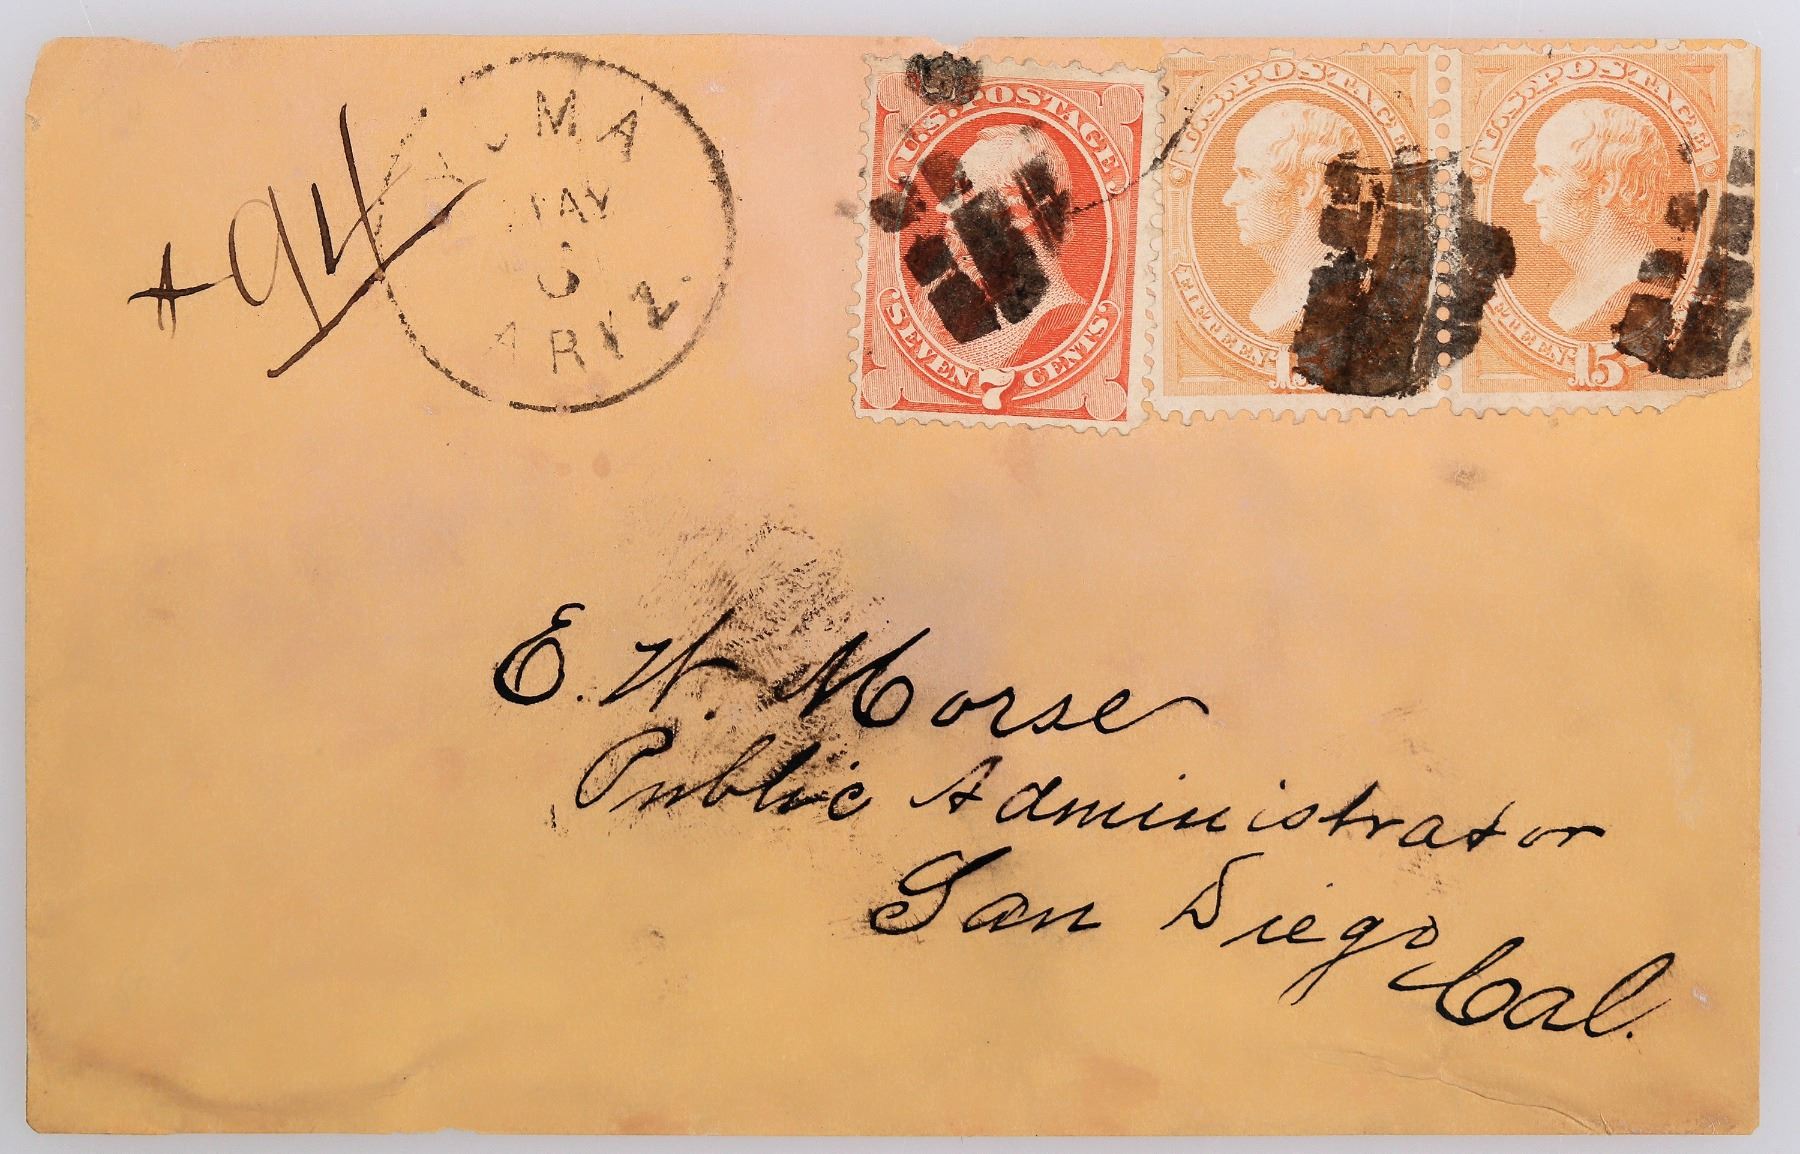 # 94
YUMA
MAY
6
ARIZ.
U.S. POSTAGE
SEVEN 7 CENTS
U.S. POSTAGE
FIFTEEN 15
U.S. POSTAGE
FIFTEEN 15
E. W. Morse
Public Administrator
San Diego
Cal.